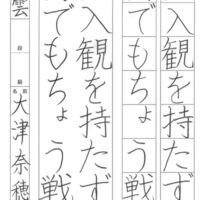 入観を持たず
でもちょう戦
入観を持たず
でもちょう戦
段
級
大津奈穂